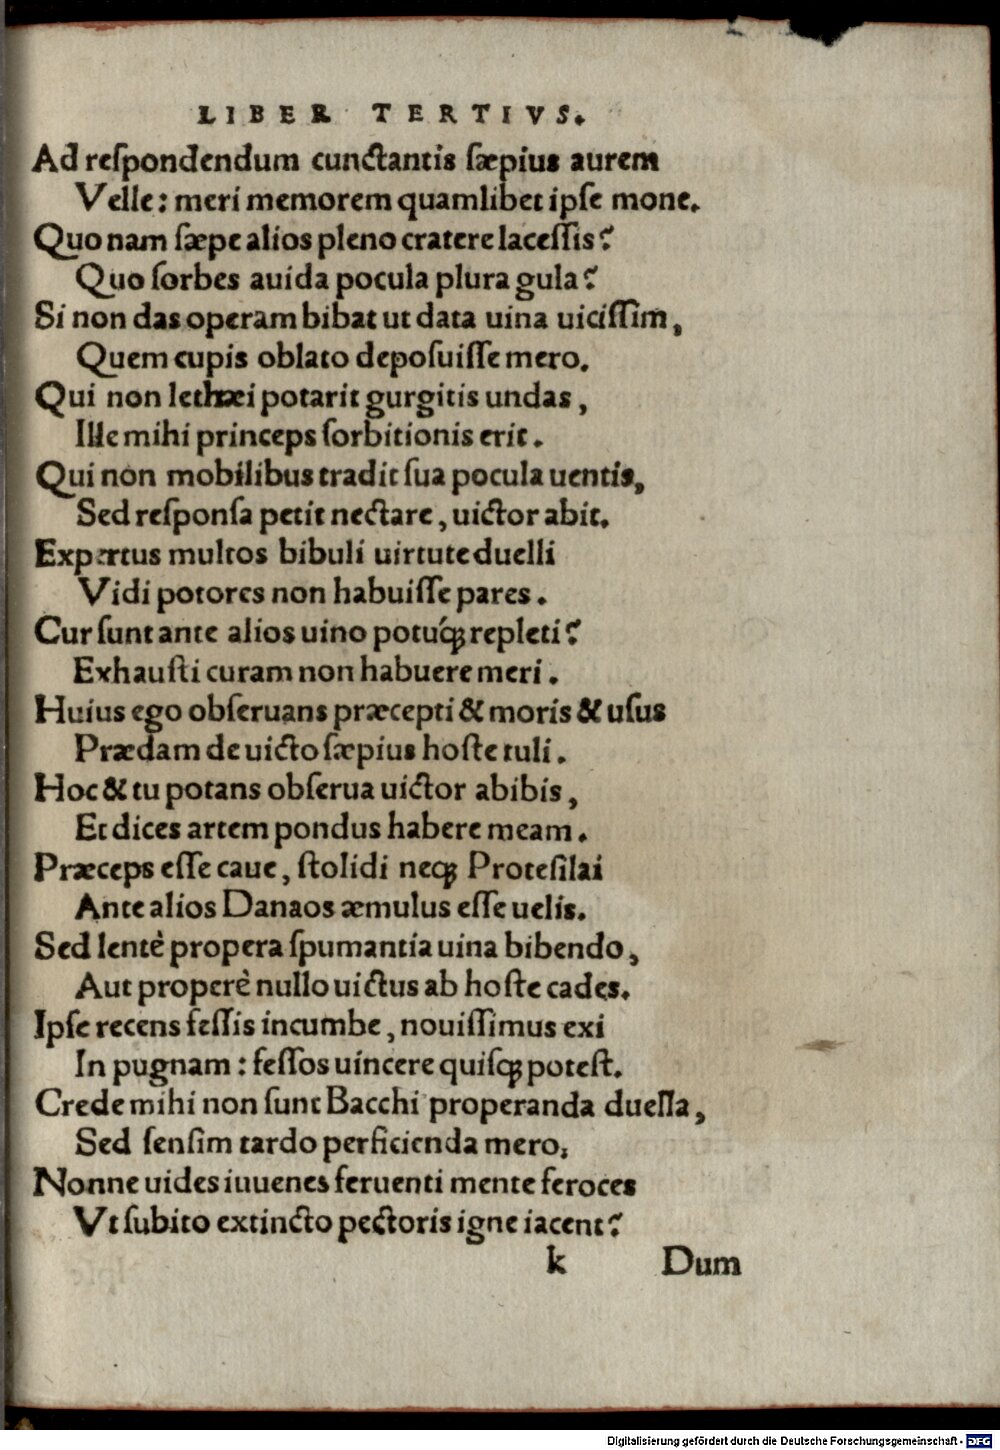 LIBER TERTIVS.
Ad reſpondendum cunctantis ſæpius aurem
Velle: meri memorem quamlibet ipſe mone.
Quo nam ſæpe alios pleno cratere laceſſis?
Quo ſorbes auida pocula plura gula?
Si non das operam bibat ut data uina uiciſſim,
Quem cupis oblato depoſuiſſe mero.
Qui non lethæi potarit gurgitis undas,
Ille mihi princeps ſorbitionis erit.
Qui non mobilibus tradit ſua pocula uentis,
Sed reſponſa petit nectare, uictor abit.
Expertus multos bibuli uirtute duelli
Vidi potores non habuiſſe pares.
Cur ſunt ante alios uino potuq́ꝫ repleti?
Exhauſti curam non habuere meri.
Huius ego obſeruans præcepti & moris & uſus
Prædam de uicto ſæpius hoſte tuli.
Hoc & tu potans obſerua uictor abibis,
Et dices artem pondus habere meam.
Præceps eſſe caue, ſtolidi neqꝫ Proteſilai
Ante alios Danaos æmulus eſſe uelis.
Sed lentè propera ſpumantia uina bibendo,
Aut properè nullo uictus ab hoſte cades.
Ipſe recens feſſis incumbe, nouiſſimus exi
In pugnam: feſſos uincere quiſqꝫ poteſt.
Crede mihi non ſunt Bacchi properanda duella,
Sed ſenſim tardo perficienda mero.
Nonne uides iuuenes feruenti mente feroces
Vt ſubito extincto pectoris igne iacent?
k Dum
Digitalisierung gefördert durch die Deutsche Forschungsgemeinschaft - DFG